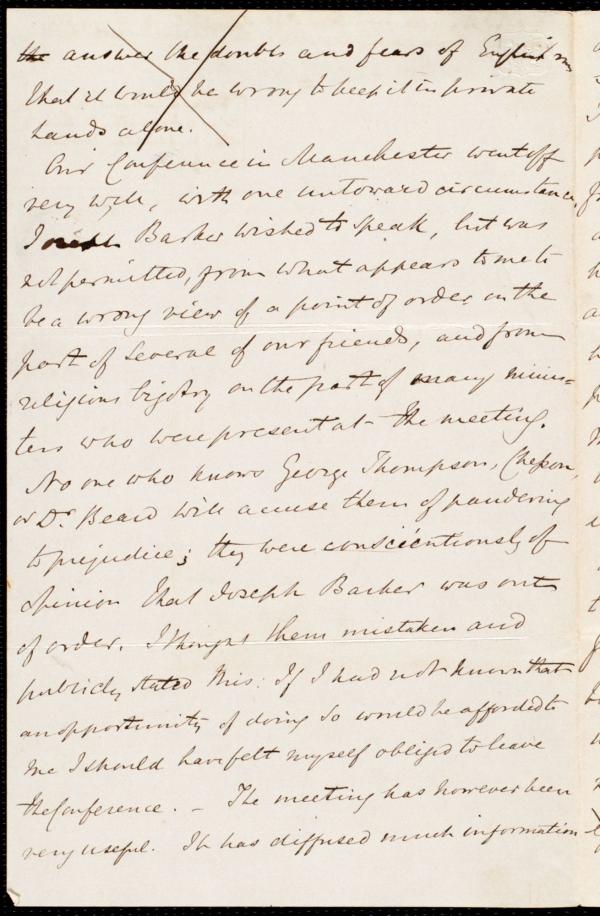 the answer the doubts and fears of English men
that it would be wrong to keep it in private
hands alone.
Our Conference in Manchester went off
very well, with one untoward circumstance,
Joseph Barker wished to speak, but was
not permitted, from what appears to me to
be a wrong view of a point of order on the
part of several of our friends, and from
religious bigotry on the part of many minis=
ters who were present at the meeting.
No one who knows George Thompson, Chesson,
or Dr. Beard will accuse them of pandering
to prejudice; they were conscientiously of
opinion that Joseph Barker was out
of order. I thought them mistaken and
publicly stated this: If I had not known that
an opportunity of doing so would be afforded to
me I should have felt myself obliged to leave
the Conference. – The meeting has however been
very useful. It has diffused much information